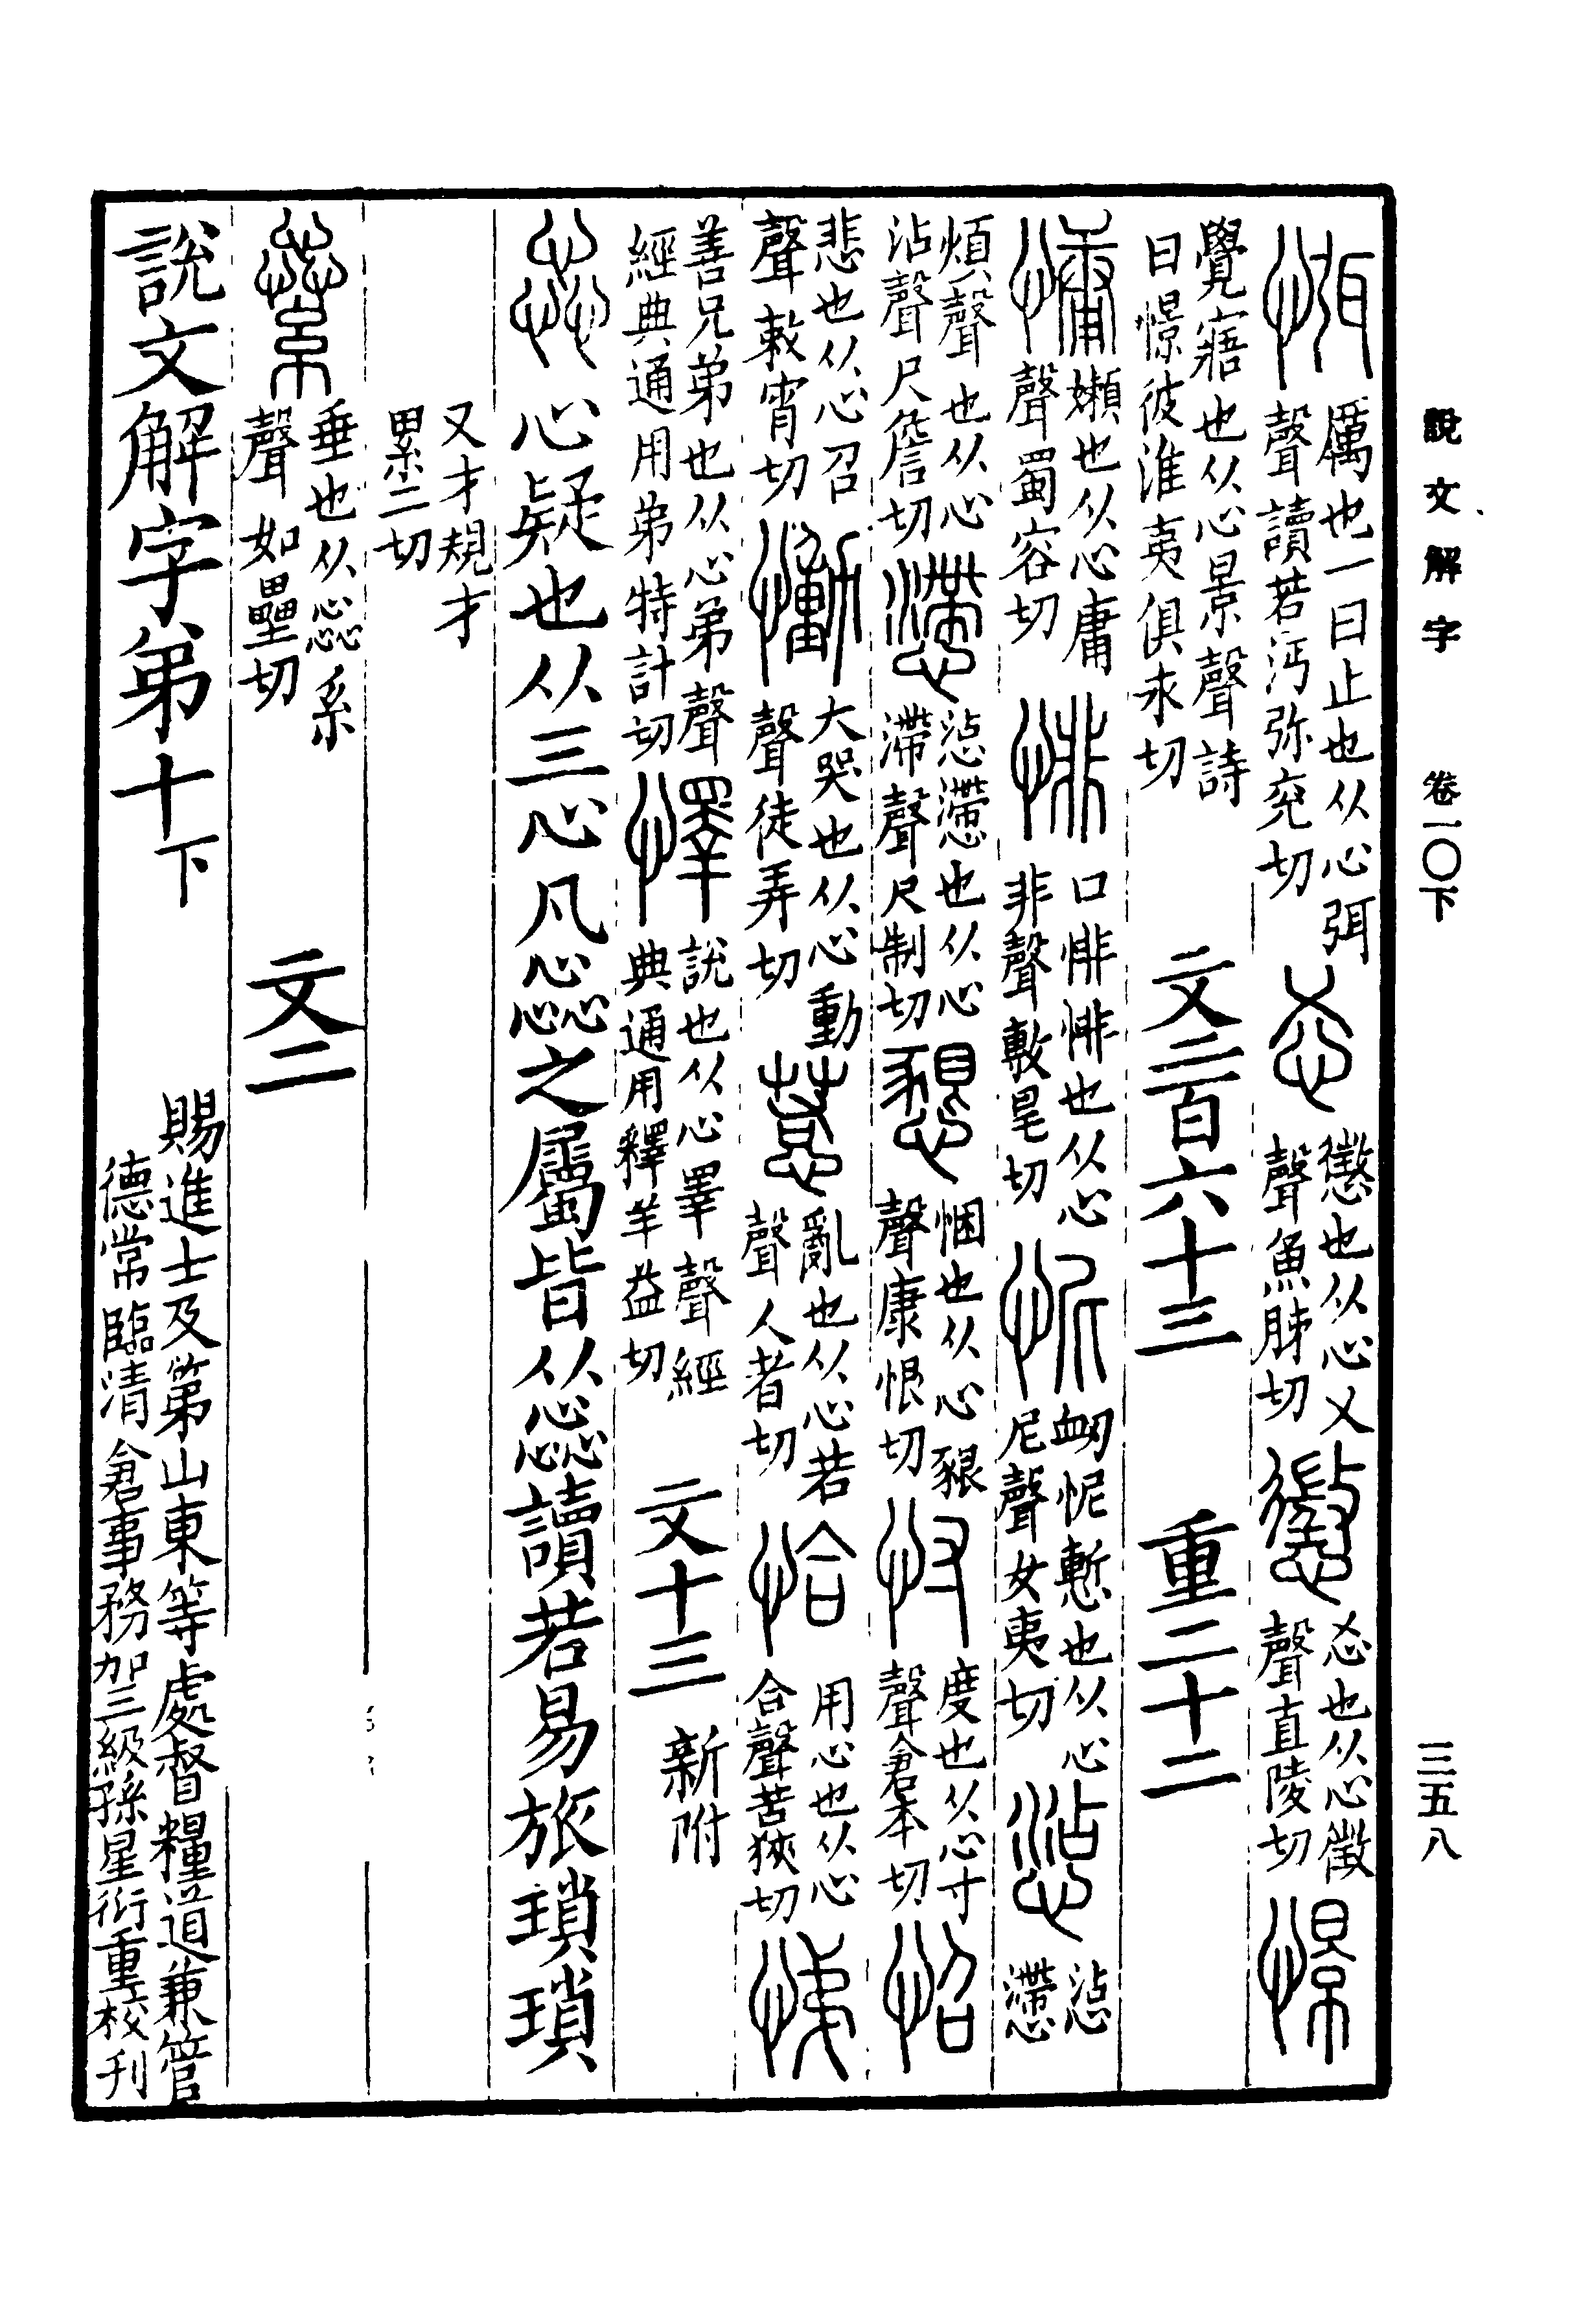 說文解字 卷一〇下 三五八
㥝厲也一曰止也从心弭聲讀若沔弥兖切㣻懲也从心乂聲魚肺切懲㣻也从心徵聲直陵切憬
覺寤也从心景聲詩曰憬彼淮夷俱永切 文二百六十三 重二十二
慵嬾也从心庸聲蜀容切悱口悱悱也从心非聲敷尾切怩衂怩慙也从心尼聲女夷切惉惉懘
煩聲也从心沾聲尺詹切懘惉懘也从心滯聲尺制切懇悃也从心豤聲康恨切忖度也从心寸聲倉本切怊
悲也从心召聲敕宵切慟大哭也从心動聲徒弄切惹亂也从心若聲人者切恰用心也从心合聲苦狹切悌
善兄弟也从心弟聲經典通用弟特計切懌說也从心睪聲經典通用釋羊益切 文十三 新附
惢心疑也从三心凡惢之屬皆从惢讀若易旅瑣瑣
又才規才累二切
繠垂也从惢糸聲如壘切 文二
說文解字弟十下 賜進士及第山東等處督糧道兼管德常臨清倉事務加三級孫星衍重校刊